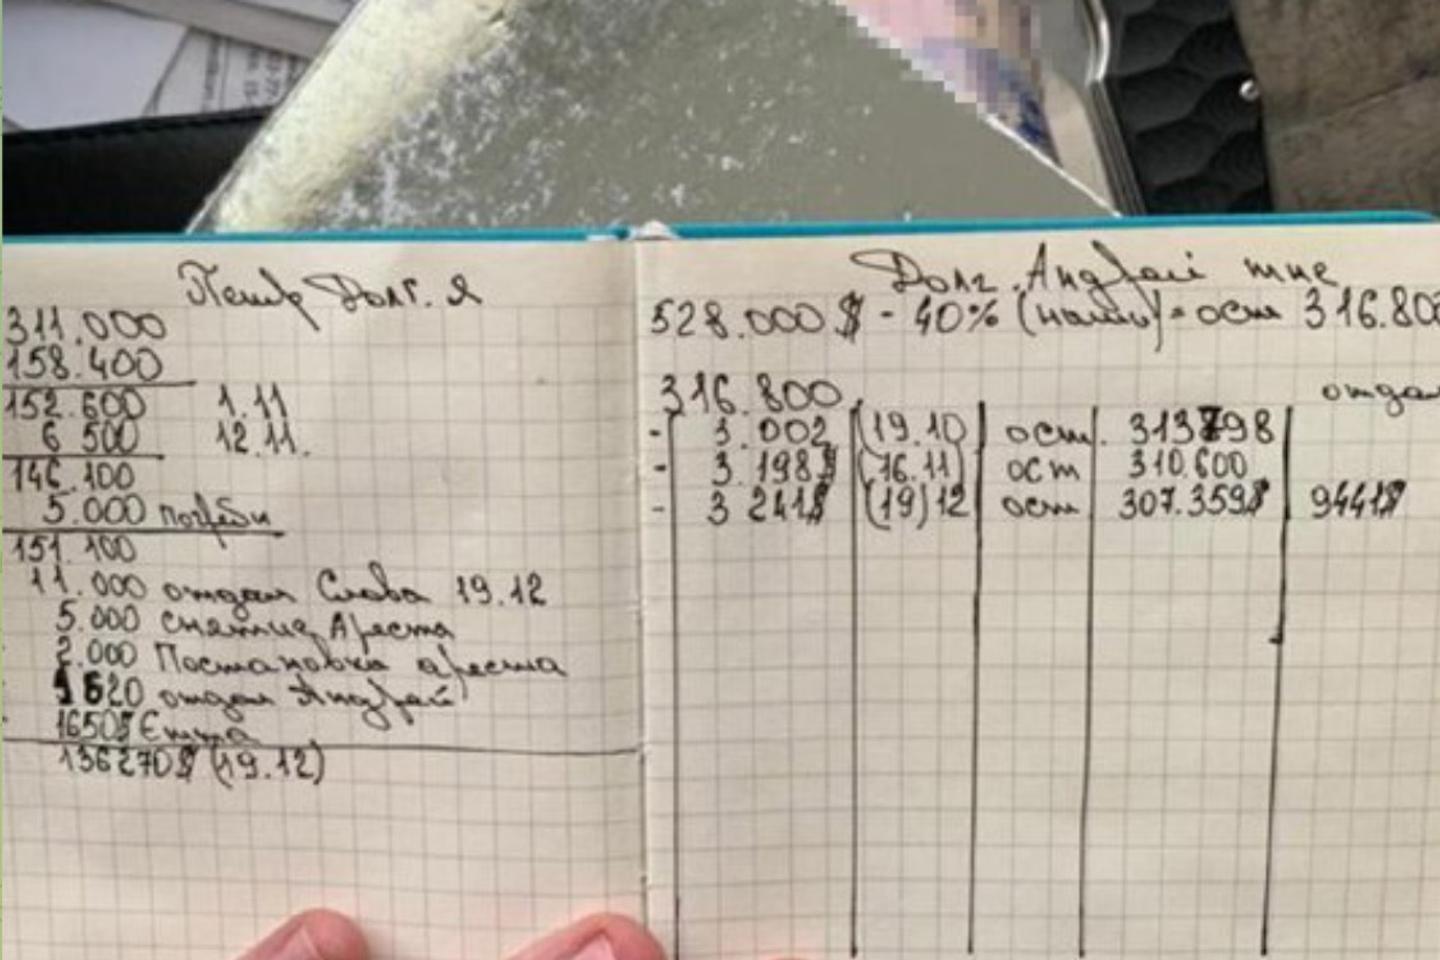 Петр Долг. Я
311.000
158.400
152.600 1.11
6 500 12.11.
146.100
5.000 погреби
151.100
11.000 отдал Слава 19.12
5.000 снятие Ареста
2.000 Постановка ареста
1620 отдал Андрей
1650$ Емма
136270$ (19.12)
Долг. Андрей мне
528.000 $ - 40% (наши) = ост 316.800
316.800 отдал
- 3.002 (19.10) ост. 313798
- 3.198$ (16.11) ост 310.600
- 3 241$ (19)12 ост 307.359$ 9441$